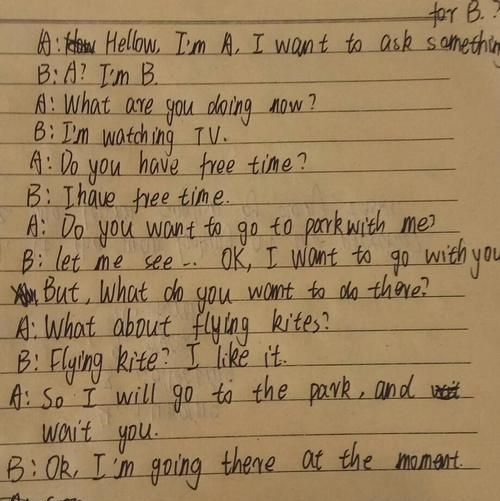 for B.
A: Hellow, I'm A, I want to ask something
B: A? I'm B.
A: What are you doing now?
B: I'm watching TV.
A: Do you have free time?
B: I have free time.
A: Do you want to go to park with me?
B: let me see... OK, I want to go with you
But, What do you want to do there?
A: What about flying kites?
B: Flying kite? I like it.
A: So I will go to the park, and
wait you.
B: Ok, I'm going there at the moment.